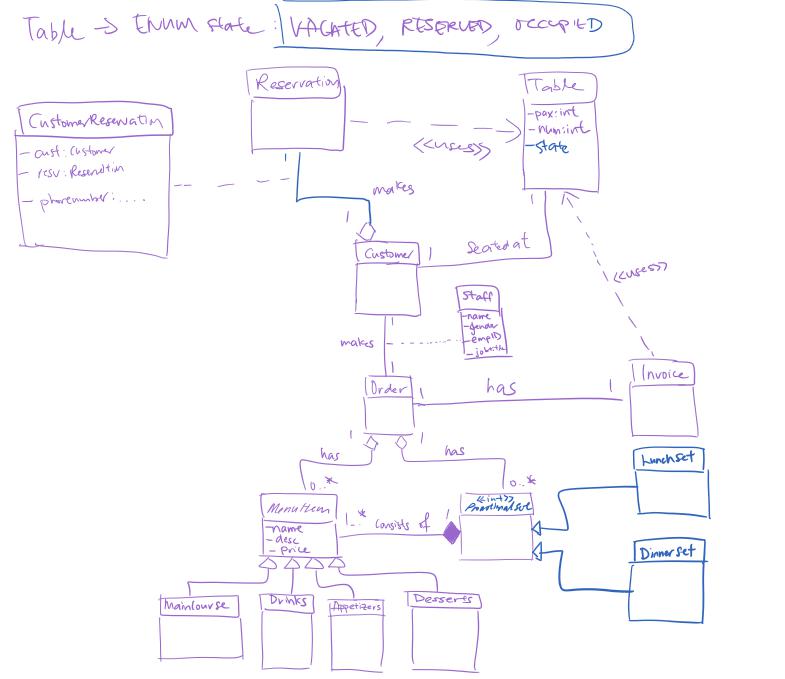 Table -> ENUM state : VACATED, RESERVED, OCCUPIED
Reservation
Table
-pax:int
-num:int
-state
CustomerReservatin
- cust: Customer
- resv: Reservation
- phonenumber: ....
<<uses>>
1
makes
1
1
Customer
1
Seated at
<<uses>>
Staff
-name
-gender
-empID
-jobtitle
1
makes
1
Order
1
has
1
Invoice
1
1
has
has
0..*
0..*
LunchSet
MenuItem
-name
-desc
-price
1..*
consists of
1
<<int>>
PromotionalSet
DinnerSet
MainCourse
Drinks
Appetizers
Desserts